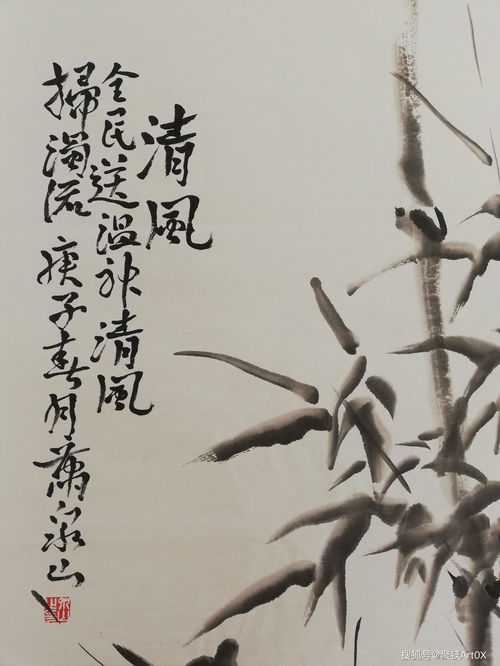 清風
全民送温神清風
掃濁流 庚子春月蕭永山
搜狐号@Art0X